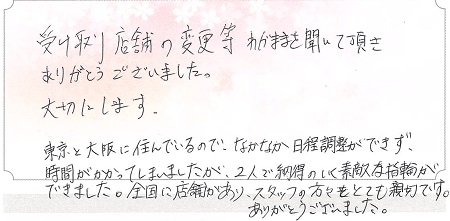 受け取り店舗の変更等 わがままを聞いて頂き
ありがとうございました。
大切にします.
東京と大阪に住んでいるので、なかなか日程調整ができず、
時間がかかってしまいましたが、2人で納得のいく素敵な指輪が
できました。全国に店舗があり、スタッフの方々もとても親切です。
ありがとうございました。